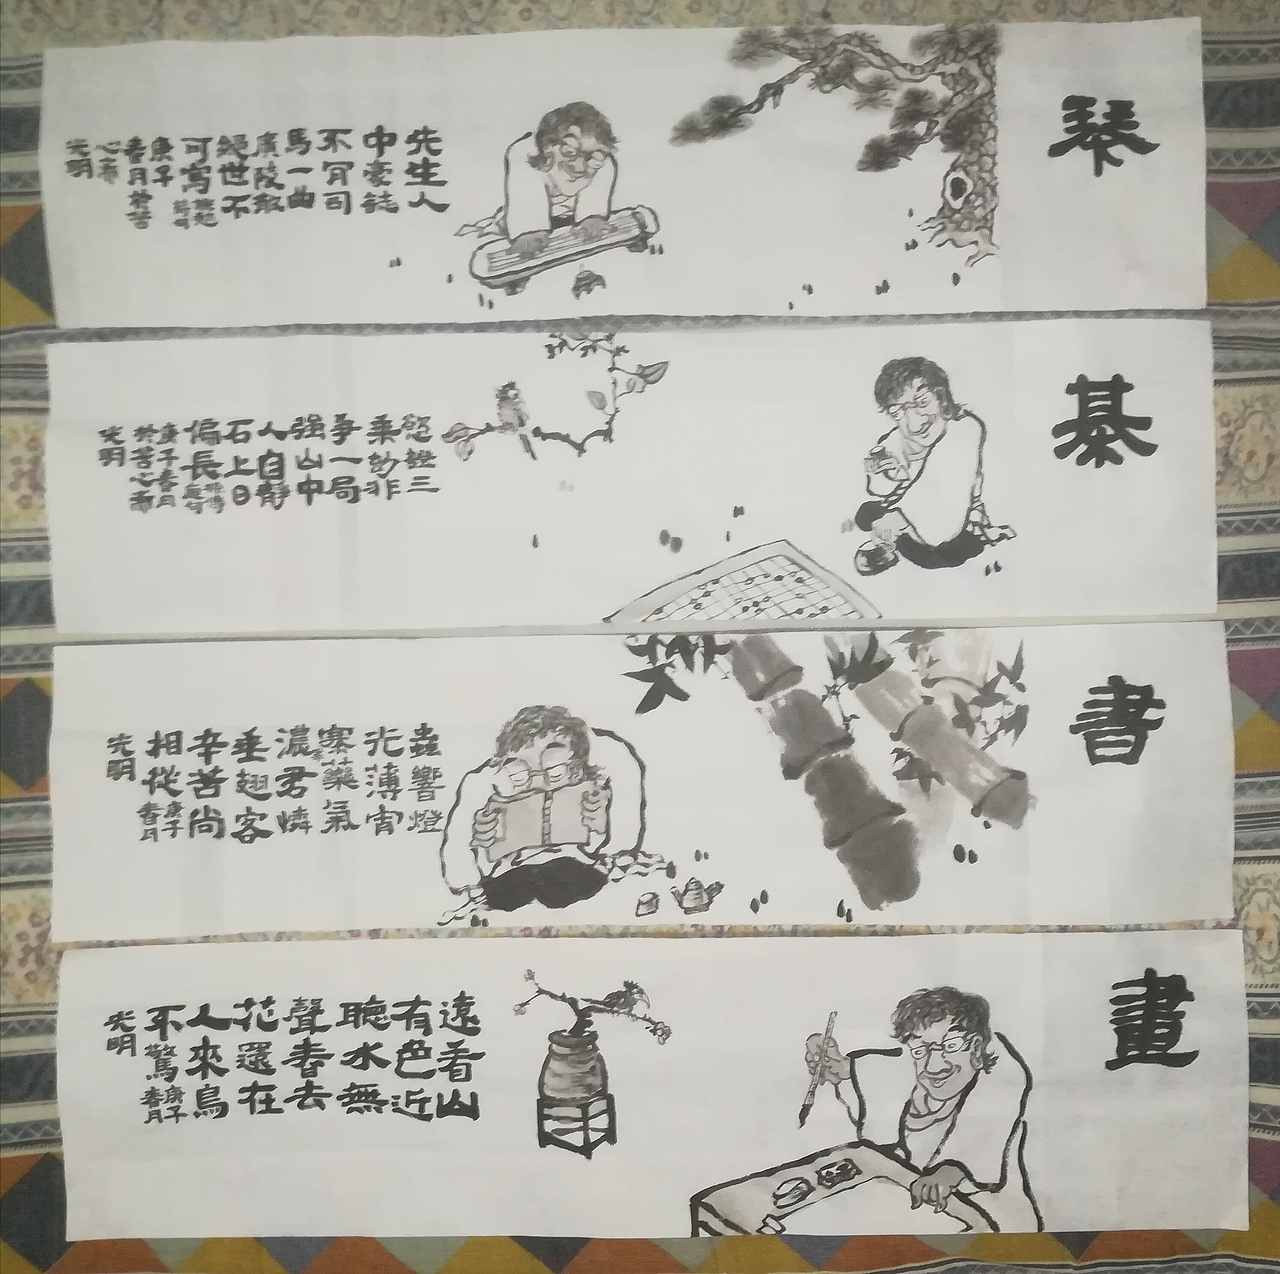 琴
先生人
中豪誌
不肯司
馬一曲
廣陵散
絕世不
可寫
庚子
春月於苦
心齋
光明
棊
慾證三
乘妙非
爭一局
強山中
人自靜
石上日
偏長
庚子春月
於苦心齋
光明
書
蟲響燈
光薄宵
寒藥氣
濃君憐
垂翅客
辛苦尚
相從
庚子
春月
光明
畫
遠看山
有色近
聽水無
聲春去
花還在
人來鳥
不驚
庚子
春月
光明